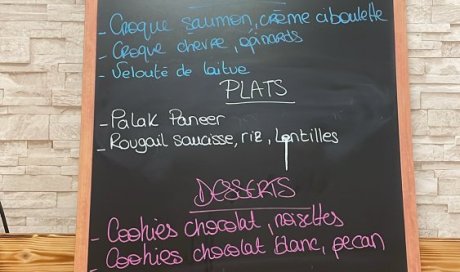 - Croque saumon, crème ciboulette
- Croque chèvre, épinards
- Velouté de laitue
PLATS
- Palak Paneer
- Rougail saucisse, riz, lentilles
DESSERTS
- Cookies chocolat, noisettes
- Cookies chocolat blanc, pecan